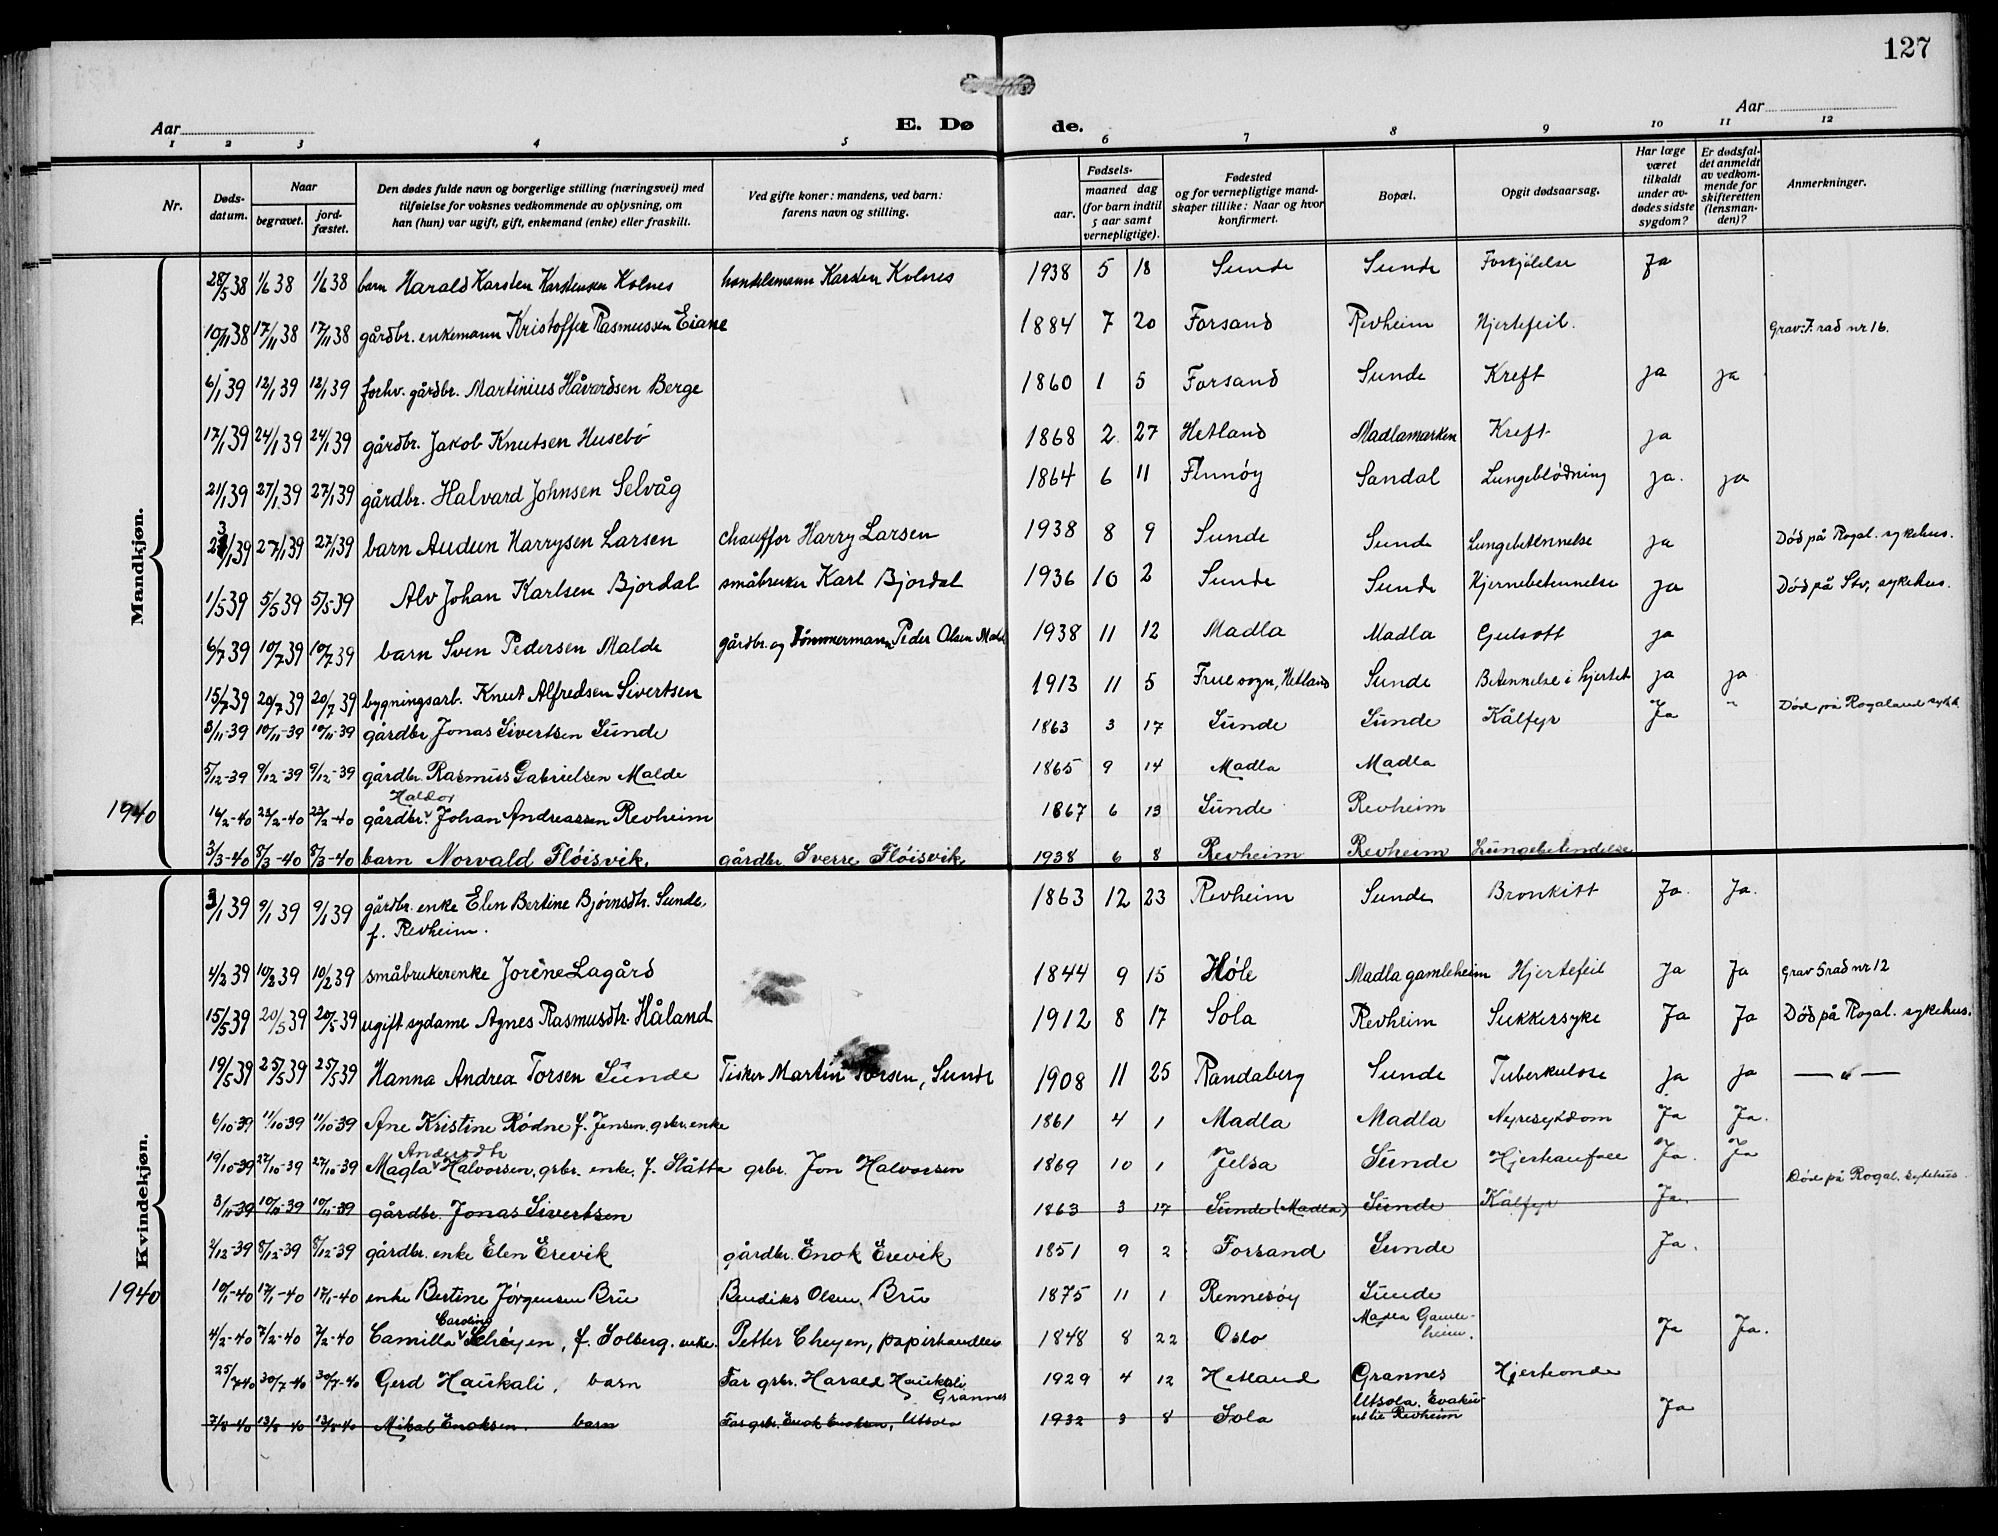 127
Aar
E. Dø de.
Aar
1 2 3 4 5 6 7 8 9 10 11 12
Nr.
Døds-datum.
Naar
begravet.
jord-fæstet.
Den dødes fulde navn og borgerlige stilling (næringsvei) med
tilføielse for voksnes vedkommende av oplysning, om
han (hun) var ugift, gift, enkemand (enke) eller fraskilt.
Ved gifte koner: mandens, ved barn:
farens navn og stilling.
Fødsels-
aar.
maaned dag
(for barn indtil
5 aar samt
vernepligtige).
Fødested
og for vernepligtige mand-
skaper tillike: Naar og hvor
konfirmert.
Bopæl.
Opgit dødsaarsag.
Har læge
været
tilkaldt
under av-
dødes sidste
sygdom?
Er dødsfal-
det anmeldt
av vedkom-
mende for
skifteretten
(lensman-
den)?
Anmerkninger.
Mandkjøn.
28/5 38 1/6 38 1/6 38 barn Harald Karsten Karstensen Kolnes handelsmann Karsten Kolnes 1938 5 18 Sunde Sunde Forkjølelse Ja
10/11 38 17/11 38 17/11 38 gårdbr. enkemann Kristoffer Rasmussen Eiane 1884 7 20 Forsand Revheim Hjertefeil. Grav: 7. rad nr 16.
6/1 39 12/1 39 12/1 39 forhv. gårdbr. Martinius Håvardsen Berge 1860 1 5 Forsand Sunde Kreft ja ja
17/1 39 24/1 39 24/1 39 gårdbr. Jakob Knutsen Husebø 1868 2 27 Hetland Madlamarken Kreft ja
21/1 39 27/1 39 27/1 39 gårdbr. Halvard Johnsen Selvåg 1864 6 11 Finnöy Sandal Lungeblødning ja. ja
23/1 39 27/1 39 27/1 39 barn Audun Harrysen Larsen chauffør Harry Larsen 1938 8 9 Sunde Sunde Lungebetennelse ja Død på Rogal. sykehus.
1/5 39 5/5 39 5/5 39 Alv Johan Karlsen Bjordal småbruker Karl Bjordal 1936 10 2 Sunde Sunde Hjernebetennelse ja Død på Stv. sykehus.
6/7 39 10/7 39 10/7 39 barn Sven Pedersen Malde gårdbr. og Tømmermann Peder Olsen 1938 11 12 Madla Madla Gulsott ja
15/7 39 20/7 39 20/7 39 bygningsarb. Knut Alfredsen Sivertsen 1913 11 5 Frue sogn, Hetland Sunde Betennelse i hjertet ja ja
3/11-39 10/11-39 10/11-39 gårdbr Jonas Sivertsen Sunde 1863 3 17 Sunde Sunde Kålfyr Ja " Død på Rogaland sykh.
5/12-39 9/12-39 9/12-39 gårdbr. Rasmus Gabrielsen Malde 1865 9 14 Madla Madla
Haldor
1940 16/2-40 23/2-40 23/2-40 gårdbr. Johan Andreassen Revheim 1867 6 13 Sunde Revheim
3/3-40 8/3-40 8/3-40 barn Norvald Fløisvik. gårdbr Sverre Fløisvik 1938 6 8 Revheim Revheim Lungebetendelse
Kvindekjøn.
3/1 39 9/1 39 9/1 39 gårdbr. enke Elen Bertine Bjørnsdtr. Sunde, 1863 12 23 Revheim Sunde Bronkitt Ja. Ja.
f. Revheim.
4/2 39 10/2 39 10/2 39 småbrukerenke Jorène Lagård 1844 9 15 Høle Madla gamleheim Hjertefeil Ja Ja Grav 5 rad nr 12
15/5 39 20/5 39 20/5 39 ugift sydame Agnes Rasmusdtr. Håland 1912 8 17 Sola Revheim Sukkersyke Ja Ja Død på Rogal. sykehus.
19/5 39 25/5 39 25/5 39 Hanna Andrea Torsen Sunde Fisker Martin Torsen, Sunde 1908 11 25 Randaberg Sunde Tuberkulose ja ja — " —
6/10-39 11/10-39 11/10-39 Ane Kristine Rødne f. Jensen. grbr. enke 1861 4 1 Madla Madla Nyresykdom Ja Ja.
Andersdtr
19/10-39 27/10-39 27/10-39 Magla Halvorsen, grbr. enke, f. Slåtta grbr. Jon Halvorsen 1869 10 1 Jelsa Sunde Hjerteanfall Ja. Ja
3/11-39 10/11-39 10/11-39 gårdbr. Jonas Sivertsen 1863 3 17 Sunde (Madla) Sunde Kålfyr Ja. Død på Rogal. sykehus.
2/12-39 8/12-39 8/12-39 gårdbr. enke Elen Erevik gårdbr. Enok Erevik 1851 9 2 Forsand Sunde Ja.
1940 10/1-40 17/1-40 17/1-40 enke Bertine Jørgensen Bru Bendiks Olsen Bru 1875 11 1 Rennesøy Sunde
Caroline
4/2-40 7/2-40 7/2-40 Camilla Schøyen, f. Solberg. enke. Petter Chøyen, papirhandler 1848 8 22 Oslo Madla Gamle-heim. Ja Ja.
25/7-40 30/7-40 30/7-40 Gerd Haukali. barn Far grbr. Harald Haukali Grannes 1929 4 12 Hetland Grannes Hjerteonde
7/8-40 13/8-40 13/8-40 Mikal Enoksen. barn Far grbr. Enok Enoksen, Utsola 1932 3 8 Sola Utsola. Evakuert til Revheim Ja